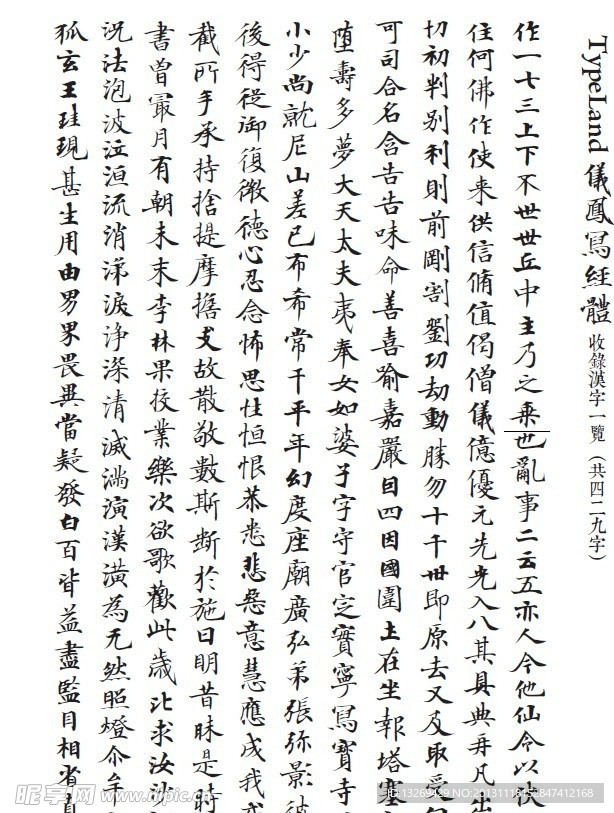 TypeLand 儀鳳寫經體 收錄漢字一覽（共四二九字）
作一七三上下不世世丘中主乃之乗也亂事二云五亦人今他仙令以
住何佛作使来供信脩值偈僧儀億優元先光入八其具典再凡出
切初判别利則前剛割劉功劫動勝勿十千卅即原去又及取受
可司合名含告吉味命善喜喻嘉嚴目四因國圍土在坐報塔塞
堕壽多夢大天太夫夷奉女如婆子字守官定實寧寫寶寺
小少尚就尼山差已布希常千平年幻度座廟廣弘弟張弥影彼
後得從御復微德心忍念怖思性恒恨恭悉悲惡意慧應成我
截所手承持捨提摩擔支故散敬數斯断於施日明昔昧是時
書曽最月有朝未末李林果校業樂次欲歌歡此歲比求汝沙
況法泡波泣洹流消涕淚浄深清滅満演漢潢為无然照燈尒牟
孤玄王珪現甚生用由男界畏異當疑發白百皆益盡監目相省真
昵享网 www.nipic.cn